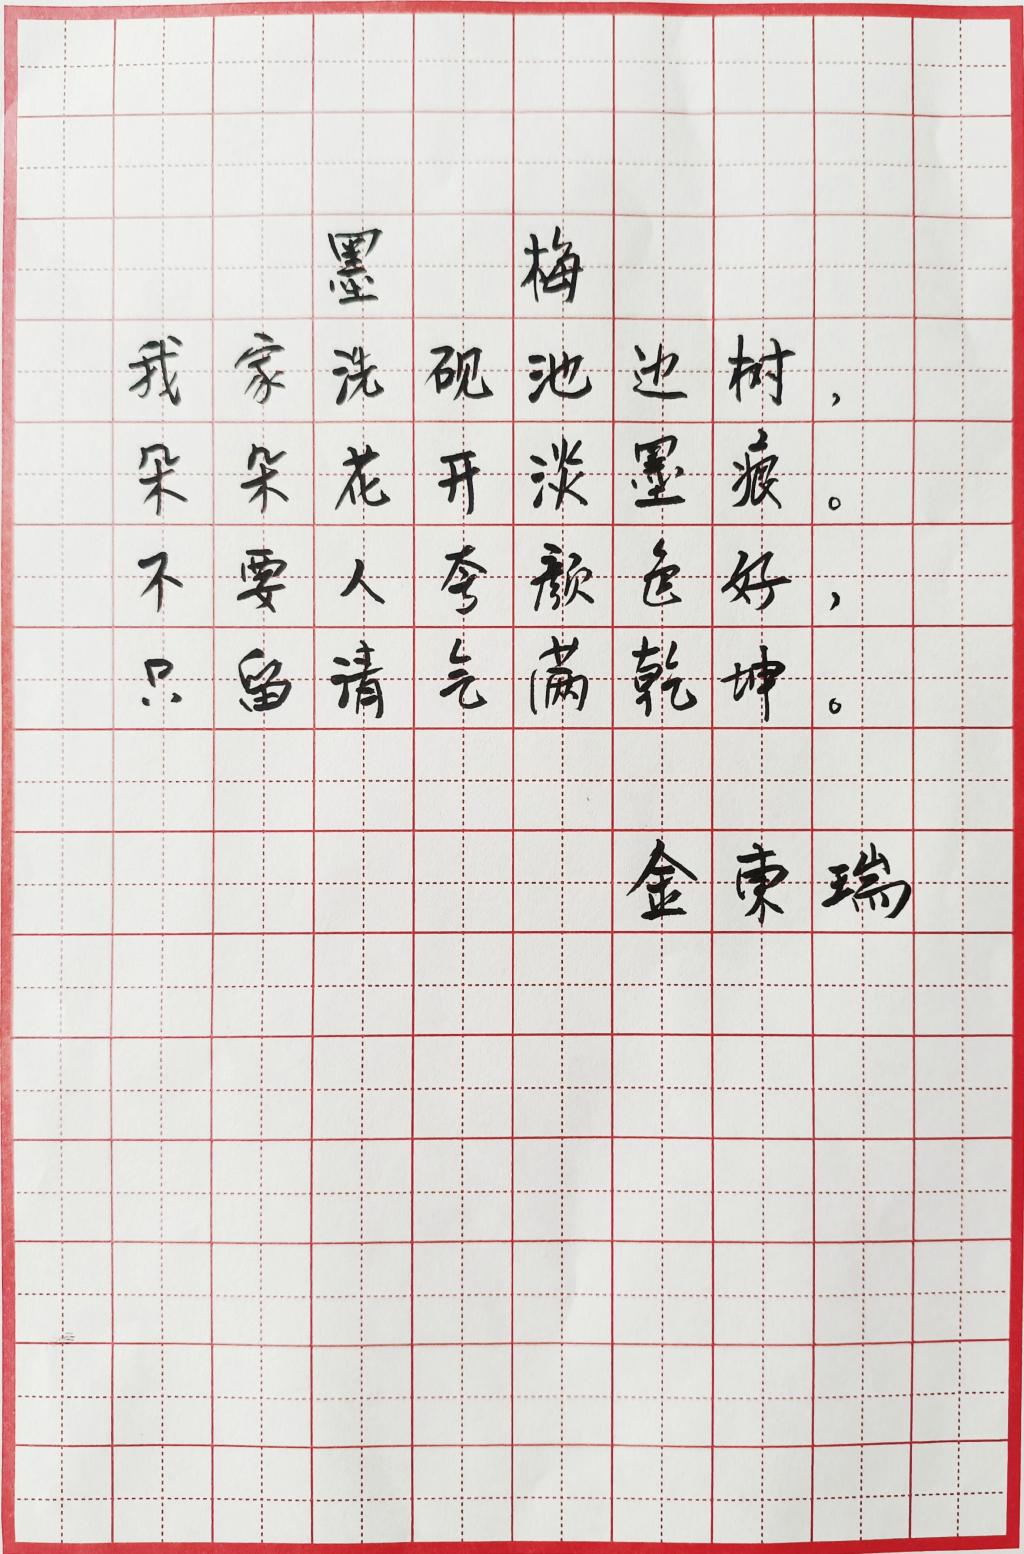 墨梅
我家洗砚池边树，
朵朵花开淡墨痕。
不要人夸颜色好，
只留清气满乾坤。
金东瑞